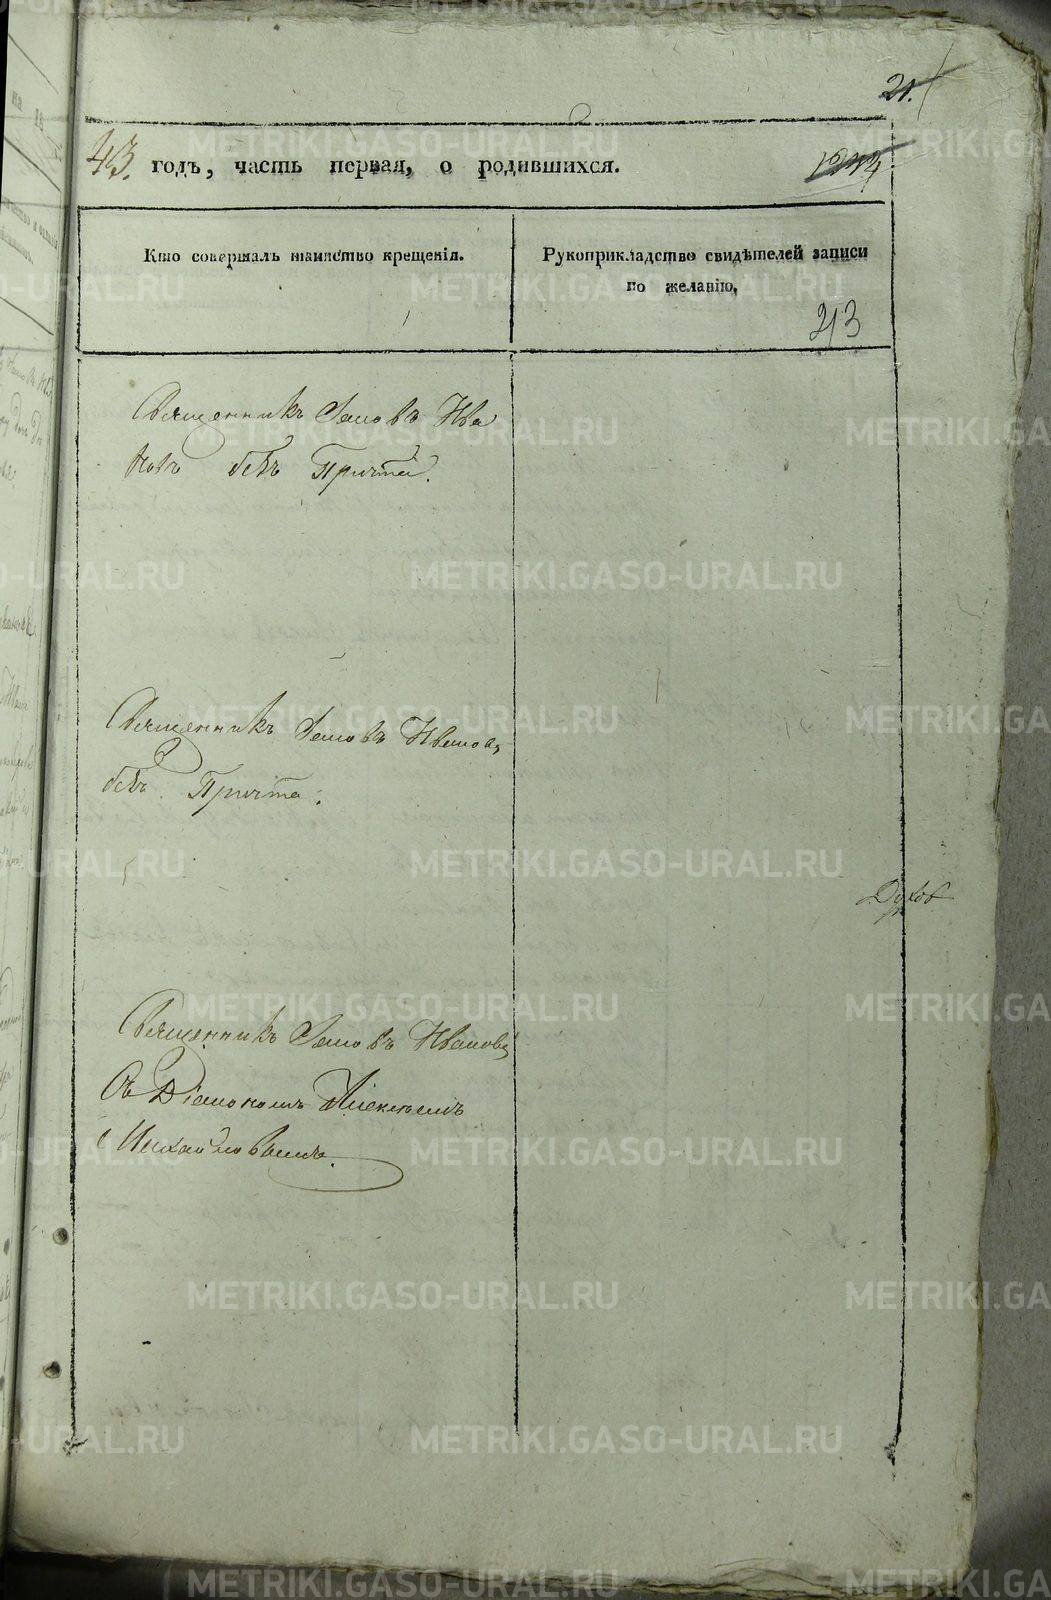 21.
43. годъ, часть первая, о родившихся.
Кто совершалъ таинство крещенія.
Рукоприкладство свидѣтелей записи
по желанію.
213
Священникъ Іаковъ Ива
новъ безъ Причта.
Священникъ Іаковъ Ивановъ
безъ Причта.
Священникъ Іаковъ Ивановъ
Съ Діакономъ Алексѣемъ
Михайловымъ.
METRIKI.GASO-URAL.RU